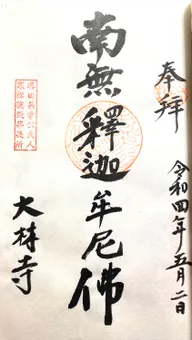 奉拜
令和四年五月二日
南無釋迦牟尼佛
大林寺